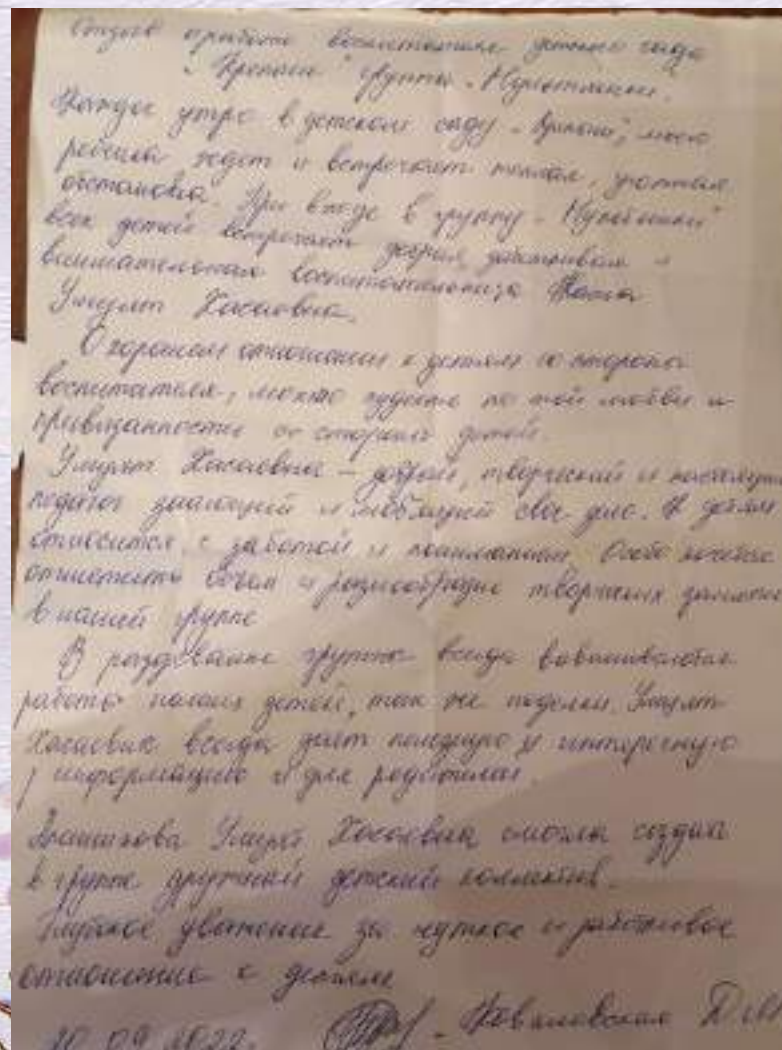 Отзыв о работе воспитателя детского сада
группы
Каждое утро в детском саду моего
ребенка ждет и встречает теплая, уютная
обстановка. При входе в группу
всех детей встречает добрая, заботливая и
внимательная воспитательница
Хасаевна.
О хорошем отношении к детям со стороны
воспитателя, можно судить по той любви и
привязанности со стороны детей.
Хасаевна – добрый, творческий и настоящий
педагог знающий и любящий свое дело. К детям
относится с заботой и пониманием. Особо хочется
отметить и разнообразие творческих занятий
в нашей группе
В раздевалке группы всегда вывешиваются
работы наших детей, так же поделки.
Хасаевна всегда дает полезную и интересную
информацию и для родителей.
Хасаевна смогла создать
в группе дружный детский коллектив.
Глубокое уважение за чуткое и
отношение к детям
09.2022г. Ковалевская